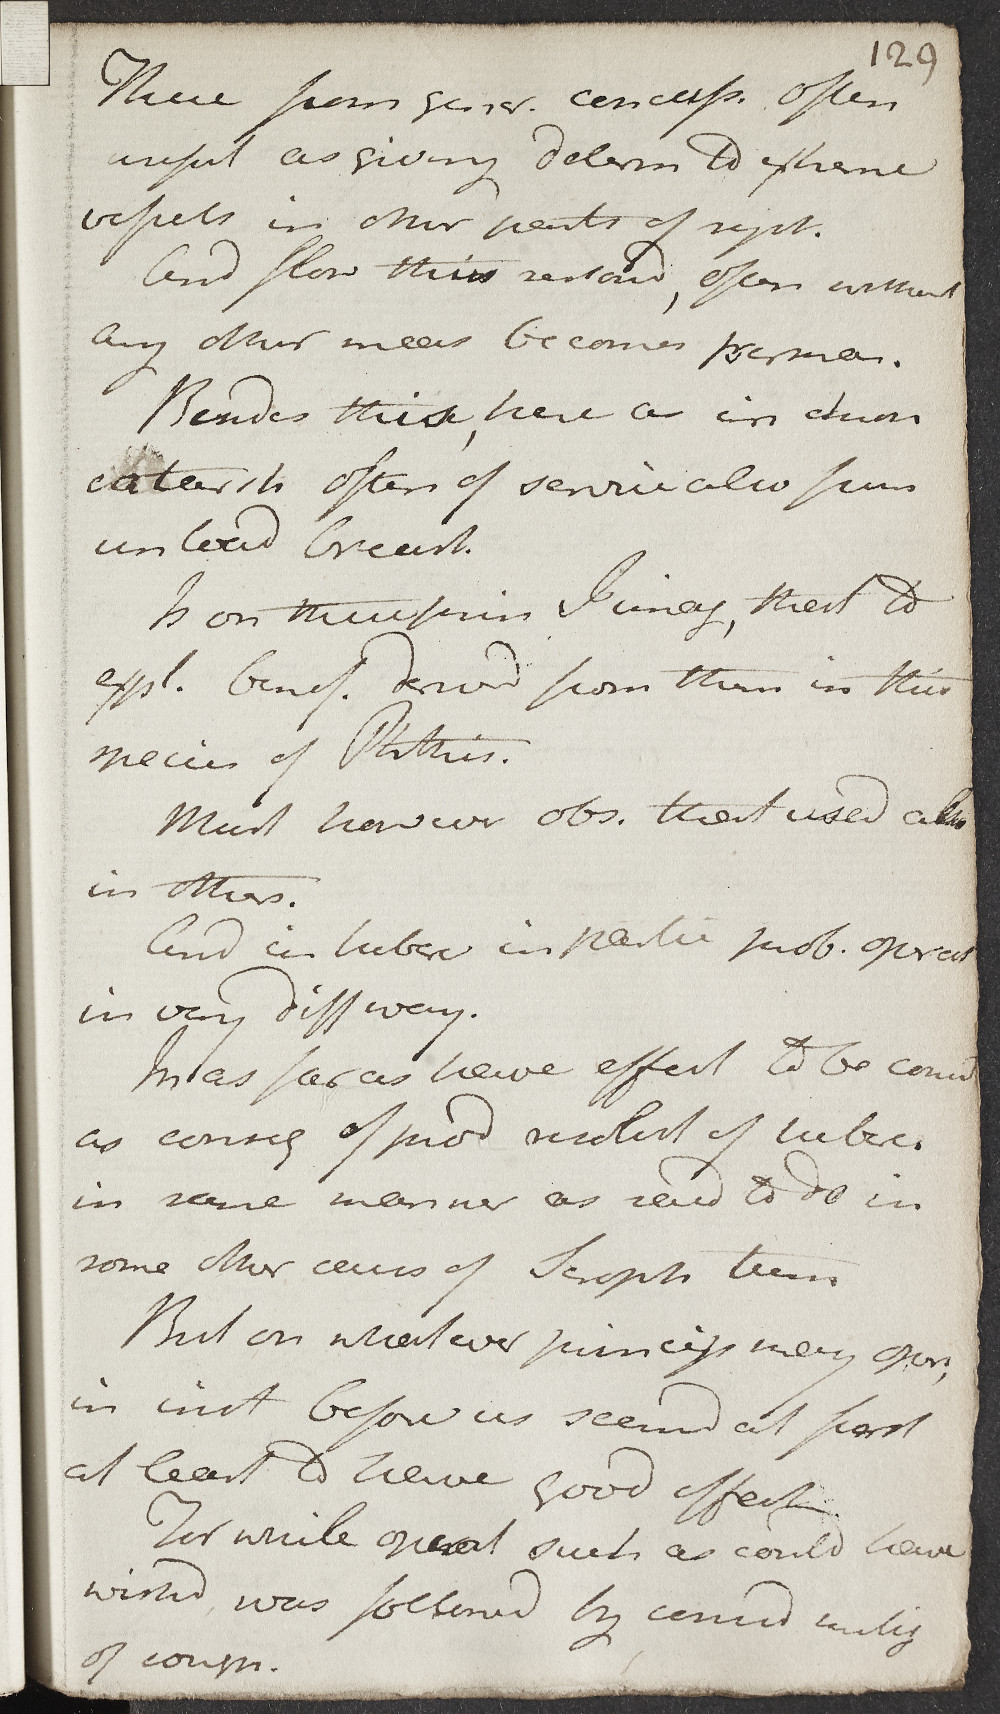 129
These from gener. concuss. often
useful as giving determ to extreme
vessels in other parts of syst.
And flow thus restord, often without
any other means becomes perman.
Besides this, here as in chron
catarrh often of service also from
unload breast.
Is on these prin I imag, that to
expl. benef. derived from them in this
species of Phthis.
Must however obs. that used also
in others.
And in tuberc in partic prob. operat
in very diff way.
In as far as have effect to be consid
as conseq of prod resolut of tuberc.
in same manner as said to do in
some other cases of Scroph tum
But on whatever princip may oper,
in inst before us seemd at first
at least to have good effect.
For while operat such as could have
wishd, was followed by consid mitig
of cough.